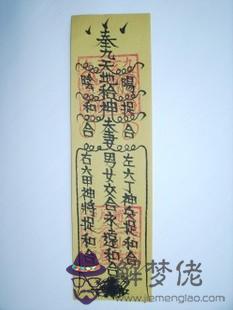 奉九天地給神夫妻男女交合永遠和合
九陽捉合
九陰和合
左六丁神女捉和合
右六甲神將捉和合
解梦佬
www.jiemenglao.com